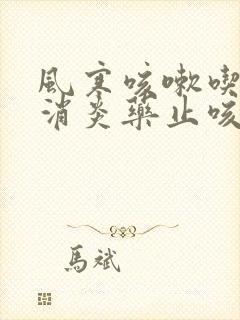 風寒咳嗽喫
消炎藥止咳
馬斌